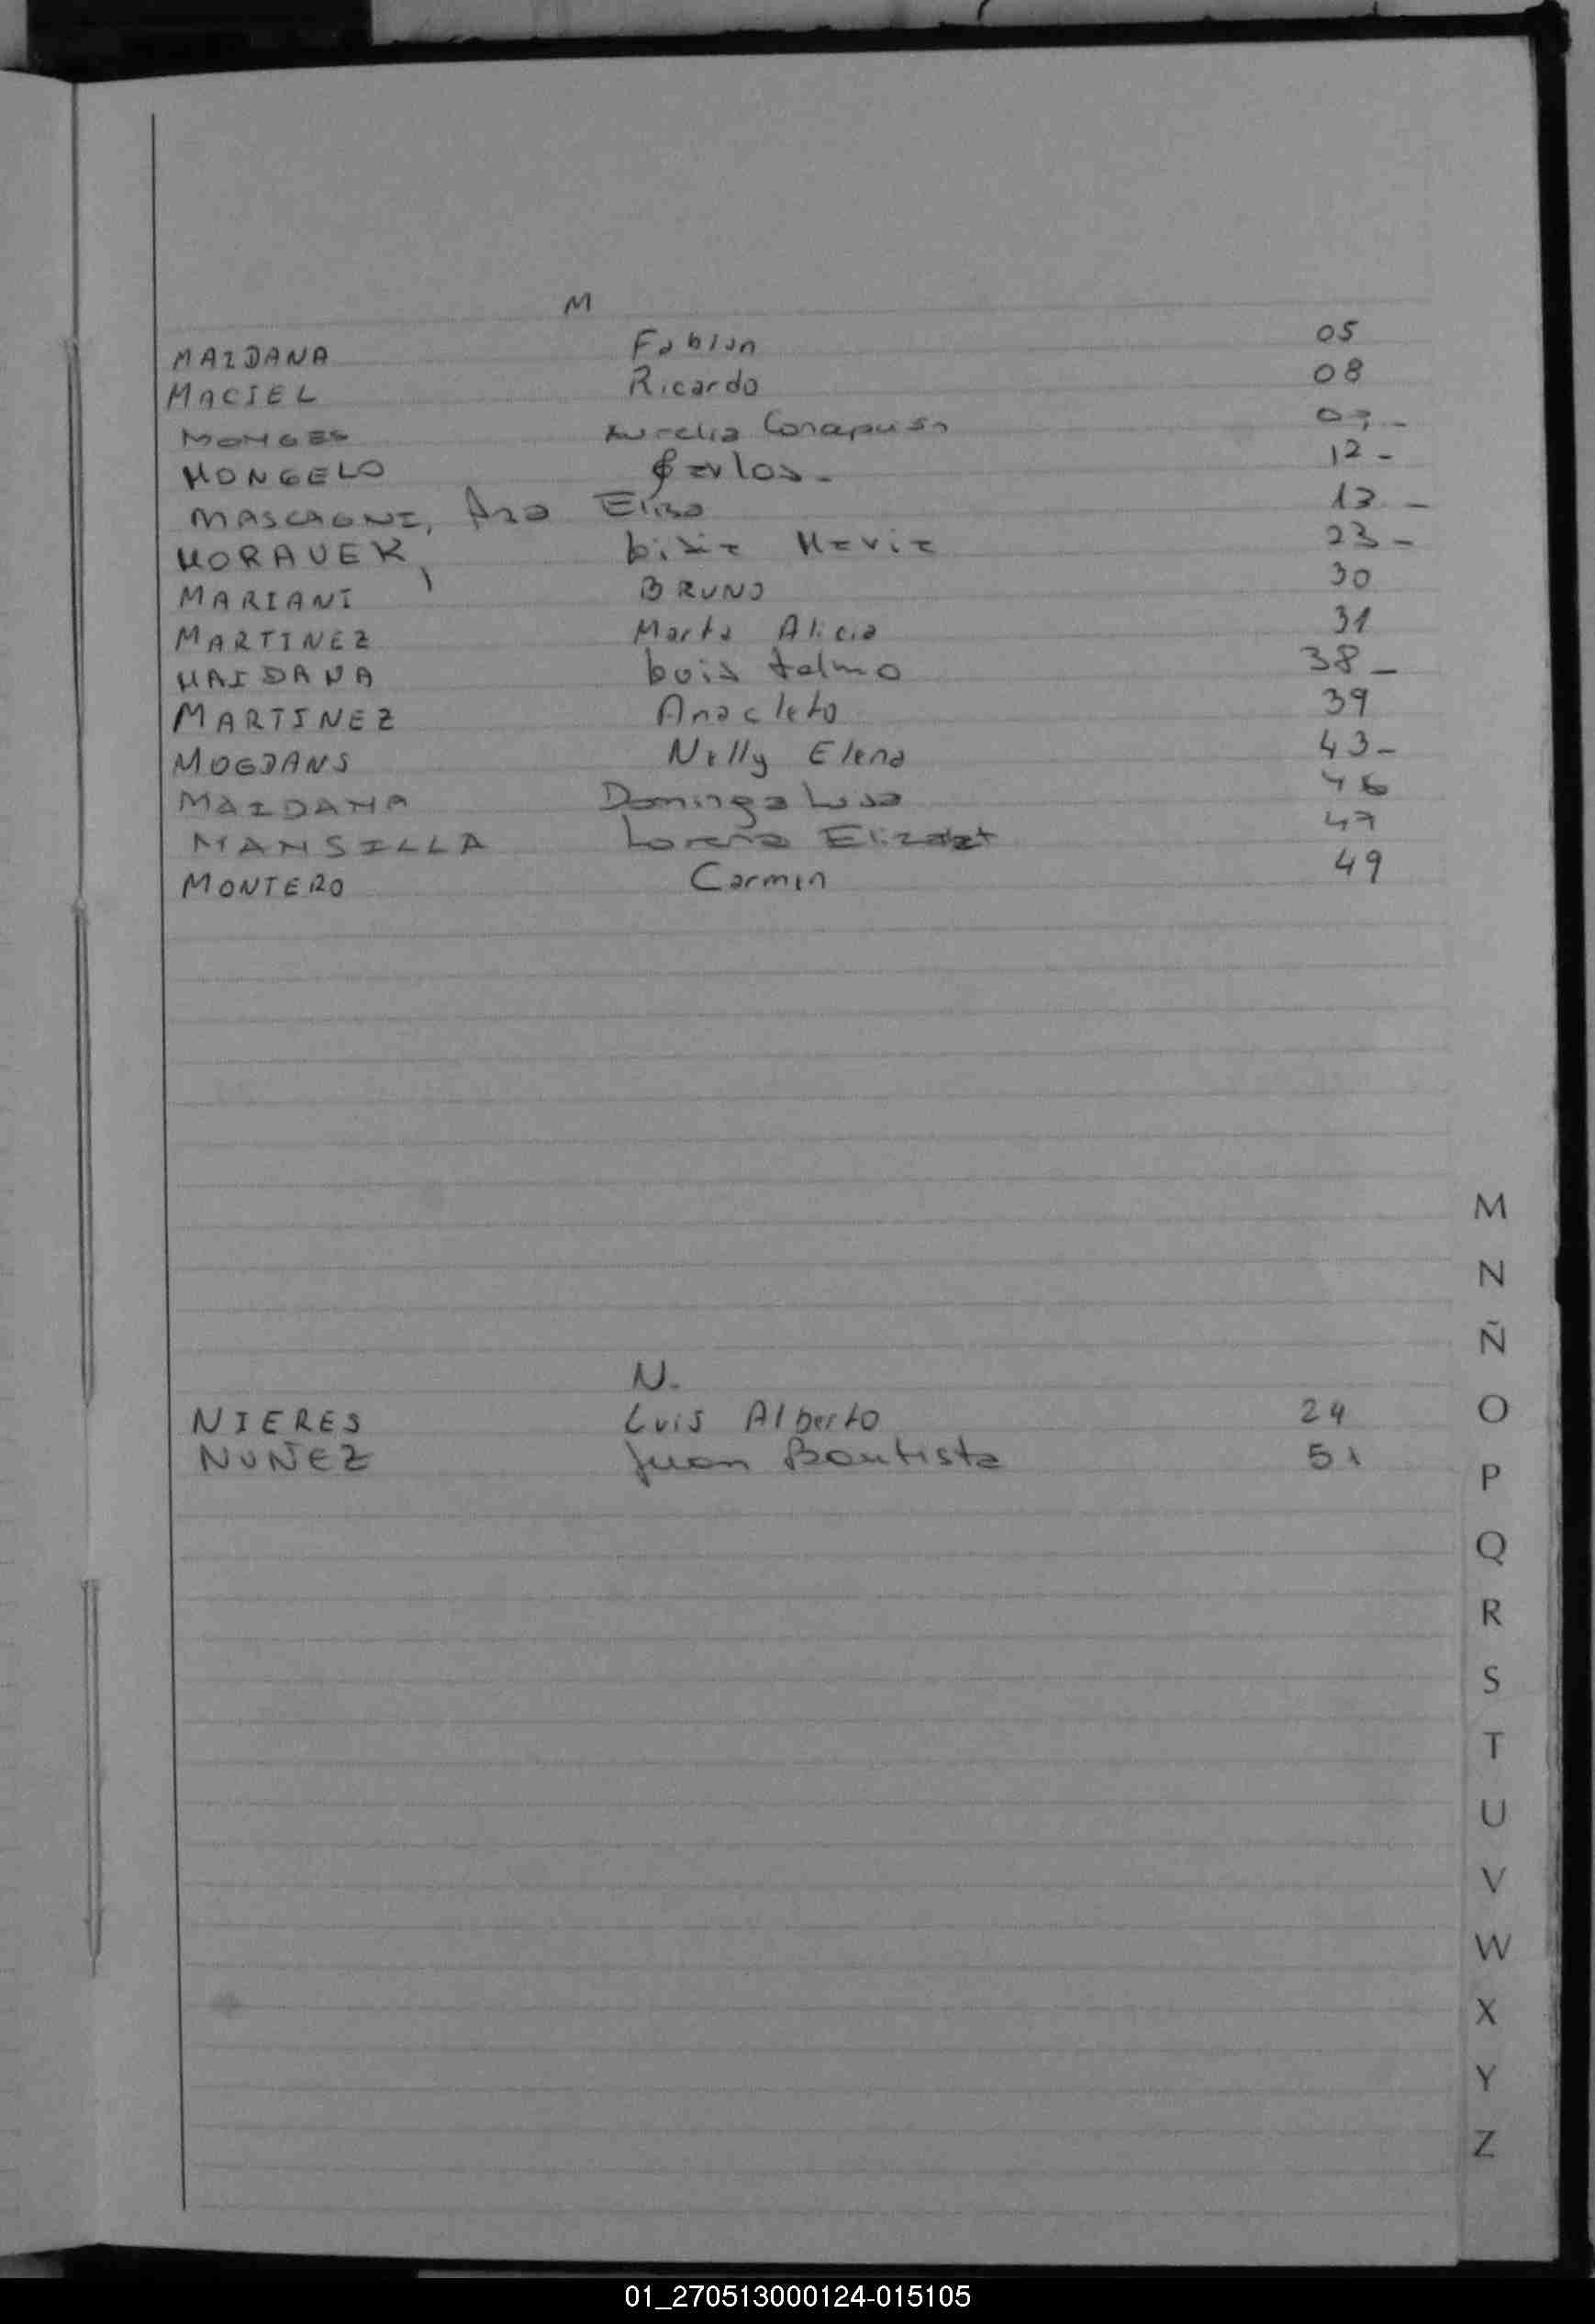 M
MAIDANA Fabian 05
MACIEL Ricardo 08
MONGES Aurelia
MONGELO Carlos - 12 -
MASCAGNI, Ana Elisa 13 -
MORAVEK, María 23 -
MARIANI BRUNO 30
MARTINEZ Marta Alicia 31
MAIDANA Luis telmo 38 -
MARTINEZ Anacleto 39
MOGDANS Nelly Elena 43 -
MAIDANA Dominga Luisa 46
MANSILLA Lorena 47
MONTERO Carmen 49
N.
NIERES Luis Alberto 24
NUÑEZ Juan Bautista 51
M
N
Ñ
O
P
Q
R
S
T
U
V
W
X
Y
Z
01_270513000124-015105